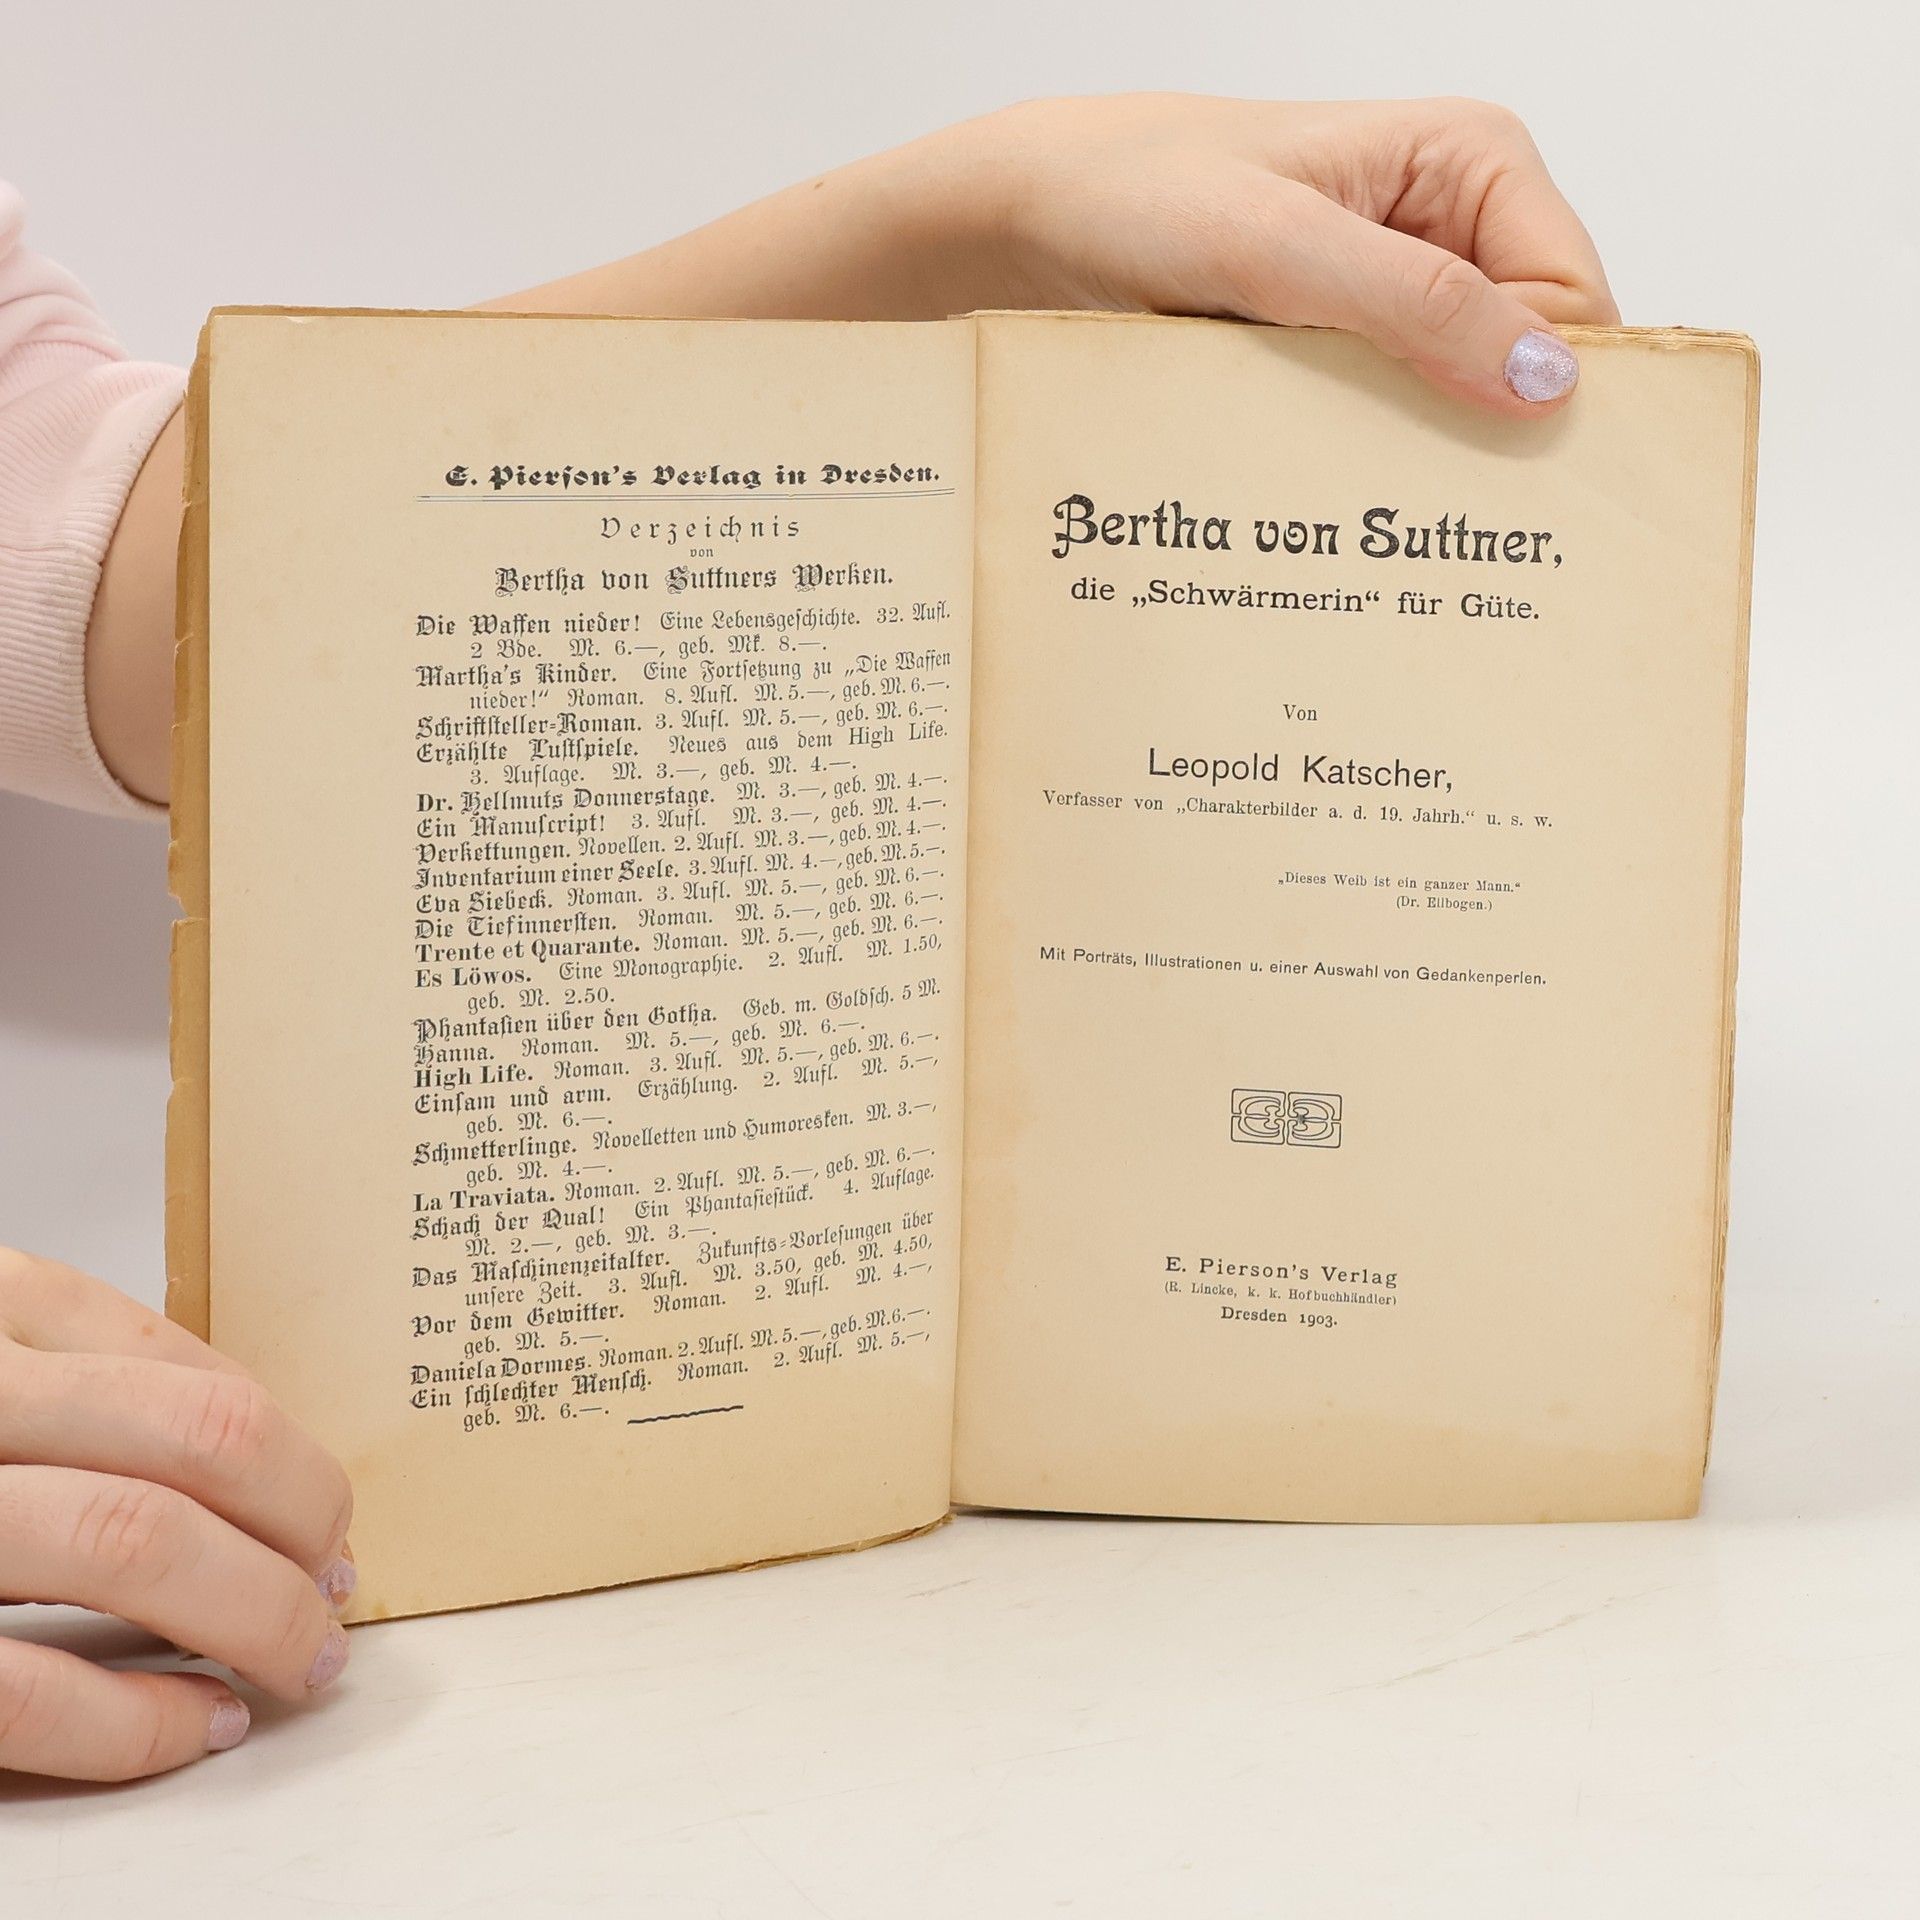 E. Pierſon's Verlag in Dresden.
Verzeichnis
von
Bertha von Suttners Werken.
Die Waffen nieder! Eine Lebensgeſchichte. 32. Aufl.
2 Bde. M. 6.—, geb. Mk. 8.—.
Martha's Kinder. Eine Fortſetzung zu „Die Waffen
nieder!“ Roman. 8. Aufl. M. 5.—, geb. M. 6.—.
Schriftſteller-Roman. 3. Aufl. M. 5.—, geb. M. 6.—.
Erzählte Luſtſpiele. Neues aus dem High Life.
3. Auflage. M. 3.—, geb. M. 4.—.
Dr. Hellmuts Donnerstage. M. 3.—, geb. M. 4.—.
Ein Manuſcript! 3. Aufl. M. 3.—, geb. M. 4.—.
Verkettungen. Novellen. 2. Aufl. M. 3.—, geb. M. 4.—.
Inventarium einer Seele. 3. Aufl. M. 4.—, geb. M. 5.—.
Eva Siebeck. Roman. 3. Aufl. M. 5.—, geb. M. 6.—.
Die Tiefinnerſten. Roman. M. 5.—, geb. M. 6.—.
Trente et Quarante. Roman. M. 5.—, geb. M. 6.—.
Es Löwos. Eine Monographie. 2. Aufl. M. 1.50,
geb. M. 2.50.
Phantaſien über den Gotha. Geb. m. Goldſch. 5 M.
Hanna. Roman. M. 5.—, geb. M. 6.—.
High Life. Roman. 3. Aufl. M. 5.—, geb. M. 6.—.
Einſam und arm. Erzählung. 2. Aufl. M. 5.—,
geb. M. 6.—.
Schmetterlinge. Novelletten und Humoresken. M. 3.—,
geb. M. 4.—.
La Traviata. Roman. 2. Aufl. M. 5.—, geb. M. 6.—.
Schach der Qual! Ein Phantaſieſtück. 4. Auflage.
M. 2.—, geb. M. 3.—.
Das Maſchinenzeitalter. Zukunfts-Vorleſungen über
unſere Zeit. 3. Aufl. M. 3.50, geb. M. 4.50,
Vor dem Gewitter. Roman. 2. Aufl. M. 4.—,
geb. M. 5.—.
Daniela Dormes. Roman. 2. Aufl. M. 5.—, geb. M. 6.—.
Ein ſchlechter Menſch. Roman. 2. Aufl. M. 5.—,
geb. M. 6.—.
Bertha von Suttner,
die „Schwärmerin“ für Güte.
Von
Leopold Katscher,
Verfasser von „Charakterbilder a. d. 19. Jahrh.“ u. s. w.
„Dieses Weib ist ein ganzer Mann.“
(Dr. Ellbogen.)
Mit Porträts, Illustrationen u. einer Auswahl von Gedankenperlen.
E. Pierson's Verlag
(R. Lincke, k. k. Hofbuchhändler)
Dresden 1903.